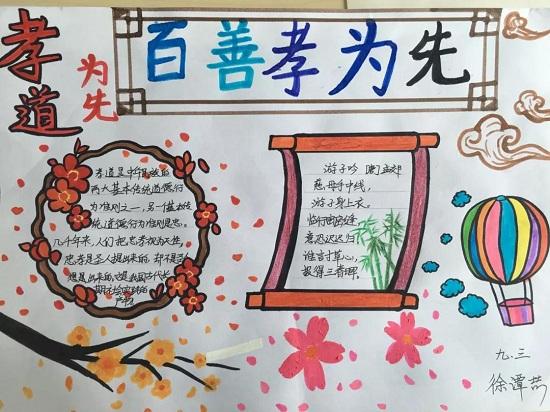 百善孝为先
孝道
为先
孝道是中华民族的
两大基本传统道德行
为准则之一，另一个基本传
统道德行为准则是忠。
几千年来，人们把忠孝视为天性，
忠孝是圣人提出来的，却不是圣人
想出来的，它是我国古代长
期社会实践的
产物。
游子吟 [唐]孟郊
慈母手中线，
游子身上衣。
临行密密缝
意恐迟迟归
谁言寸草心，
报得三春晖。
九.三
徐谭